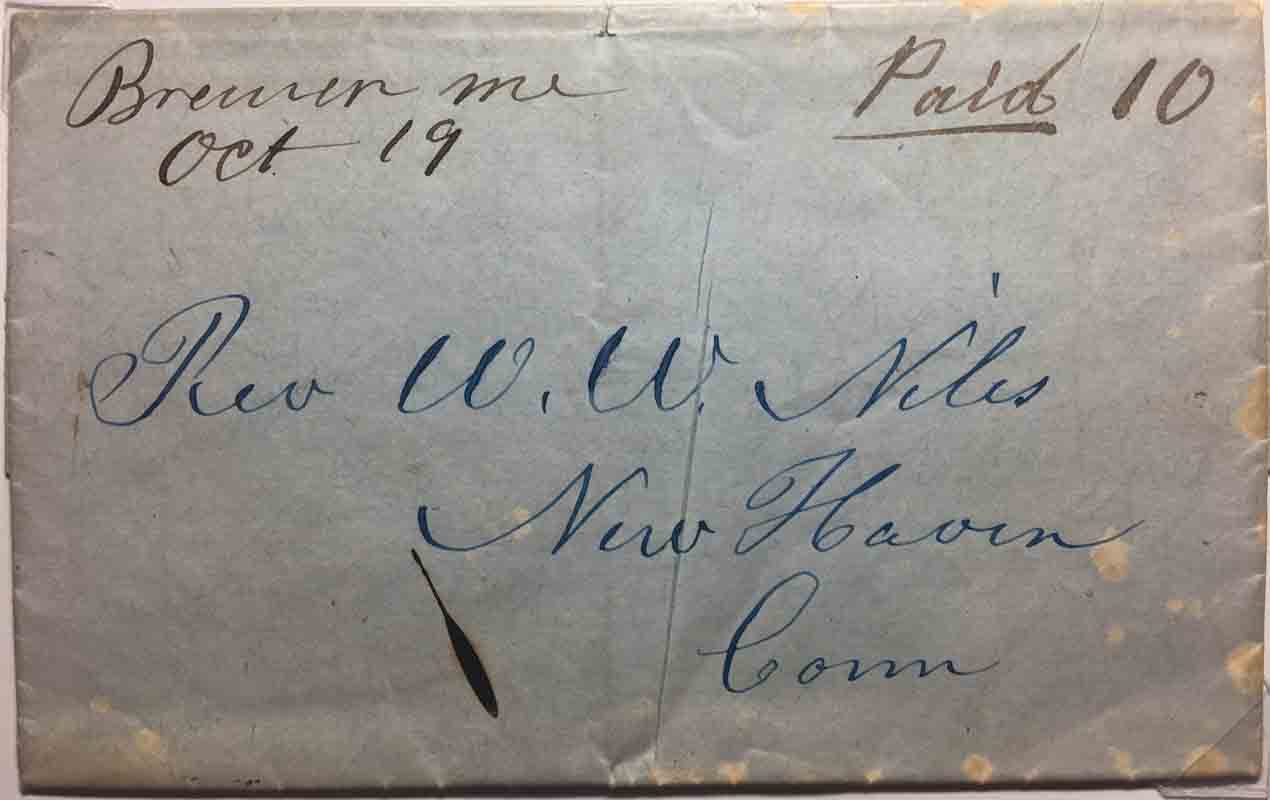 Bremen me
Oct 19
Paid 10
Rev W. W. Niles
New Haven
Conn